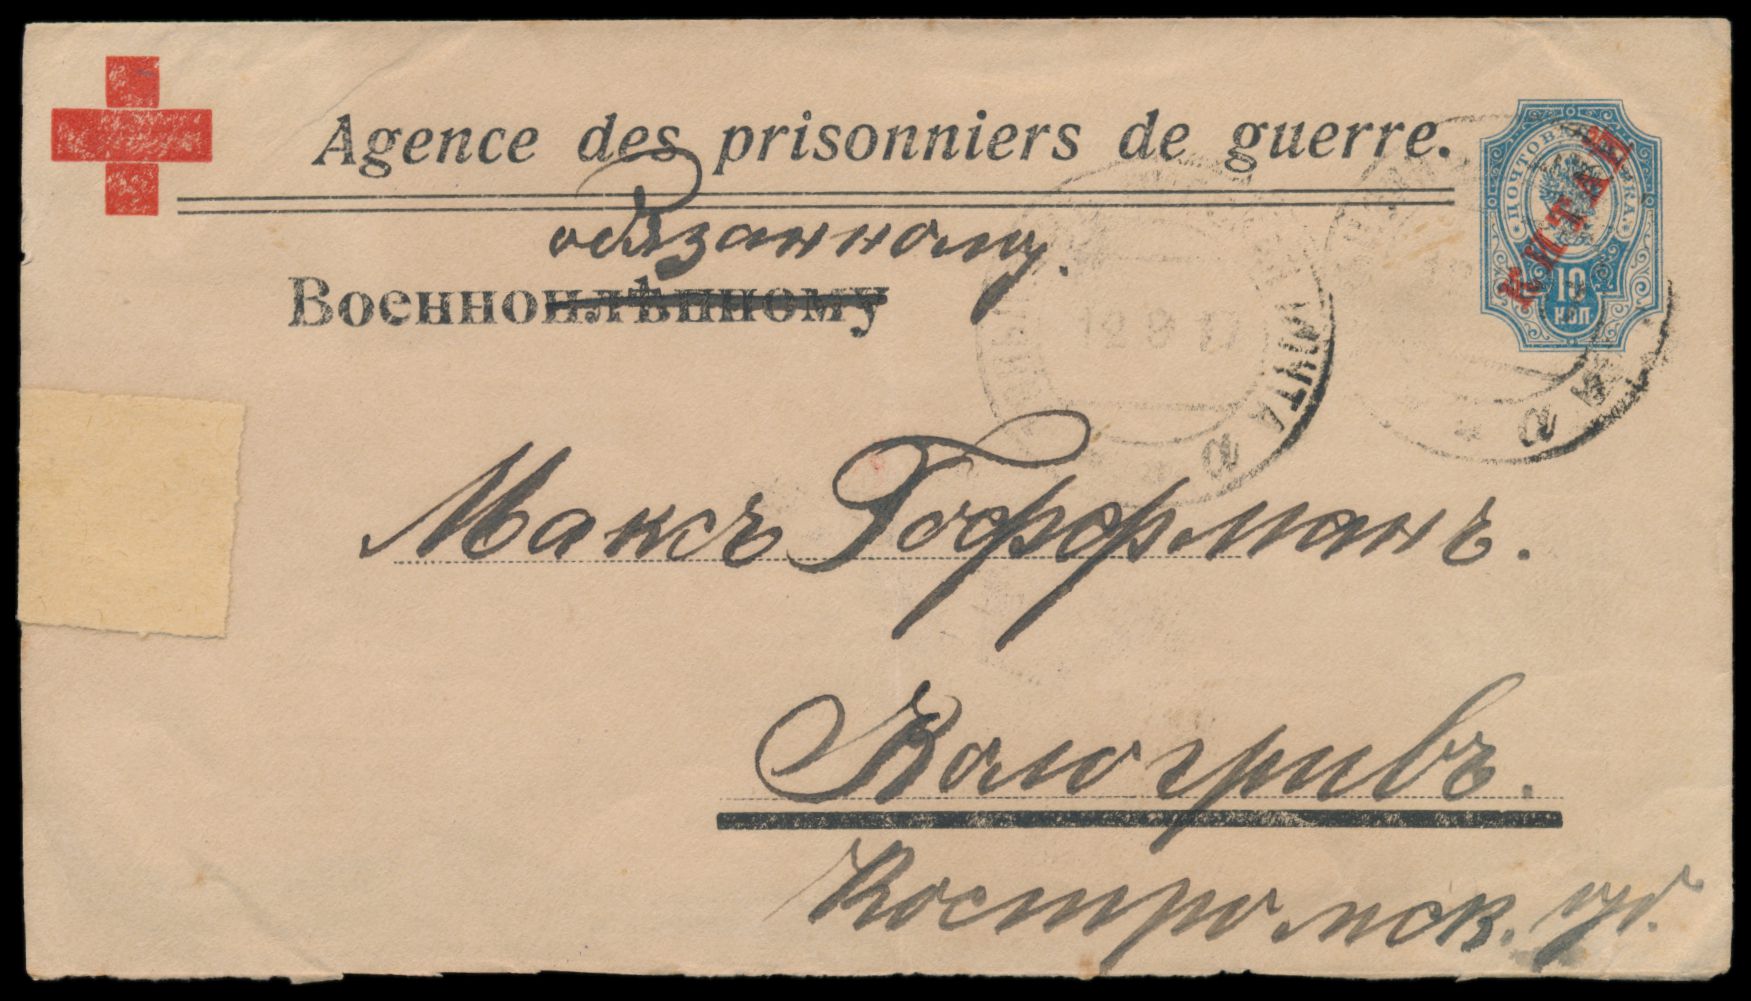 Agence des prisonniers de guerre.
обязанному.
Военноплѣнному
Максъ Гофрманъ.
Кологривъ.
Костромск. губ.
ПОЧТОВАЯ МАРКА.
КИТАЙ
10
КОП
ПОЧТА
12 8 17
a
a